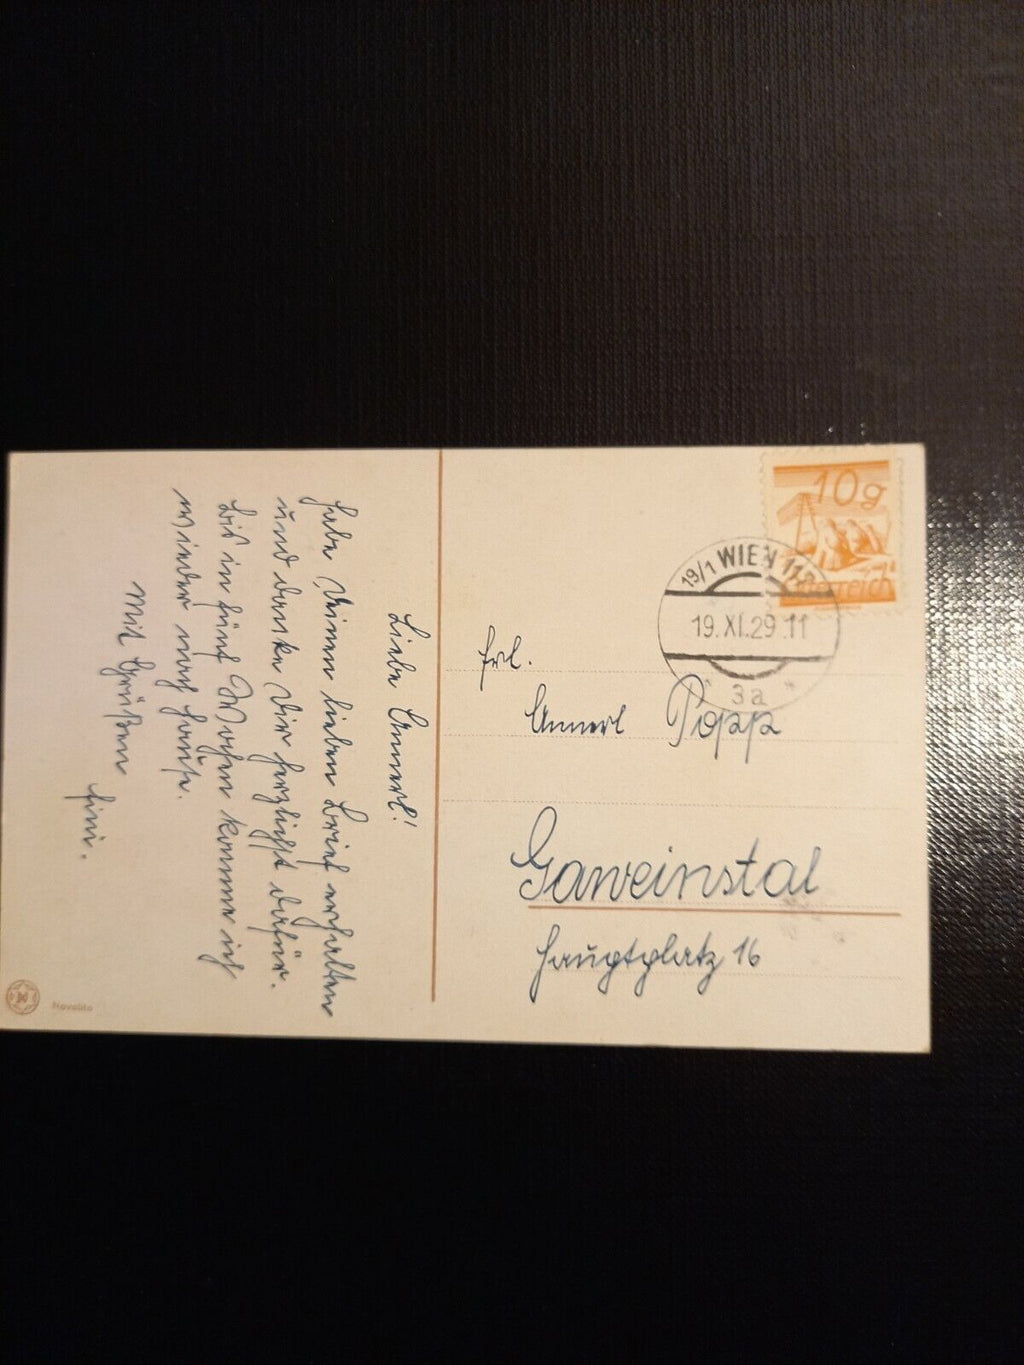 Liebe Annerl!
Habe Deinen lieben Brief erhalten
und danke Dir herzlichst dafür.
Bis in fünf Wochen komme ich
wieder nach Hause.
Mit Grüßen
Fini.
10g
Österreich
19/1 WIEN 11
19.XI.29.11
* 3a *
Frl.
Annerl Popp
Gaweinstal
Hauptplatz 16
Novolito